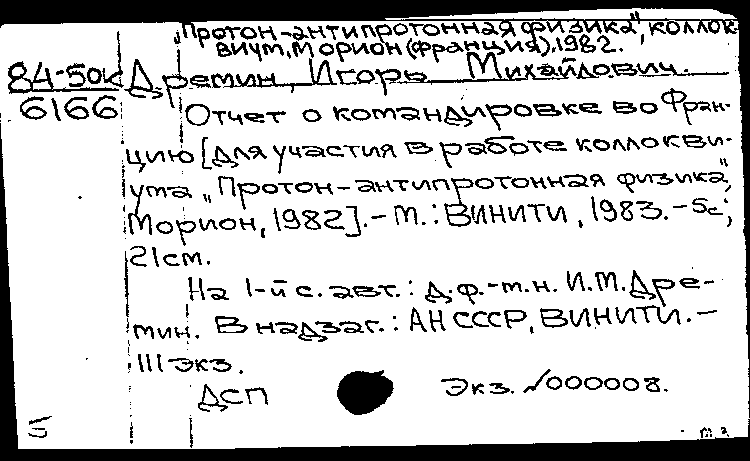 „Протон-антипротонная физика", коллок-
виум, Морион (Франция), 1982.
84-50к Дремин, Игорь Михайлович.
6166
Отчет о командировке во Фран-
цию [для участия в работе коллокви-
ума „Протон-антипротонная физика",
Морион, 1982]. - М.: ВИНИТИ, 1983. - 5с;
21см.
На 1-й с. авт.: д.ф.-м.н. И.М.Дре-
мин. В надзаг.: АН СССР, ВИНИТИ. -
III экз.
ДСП Экз. №000008.
5